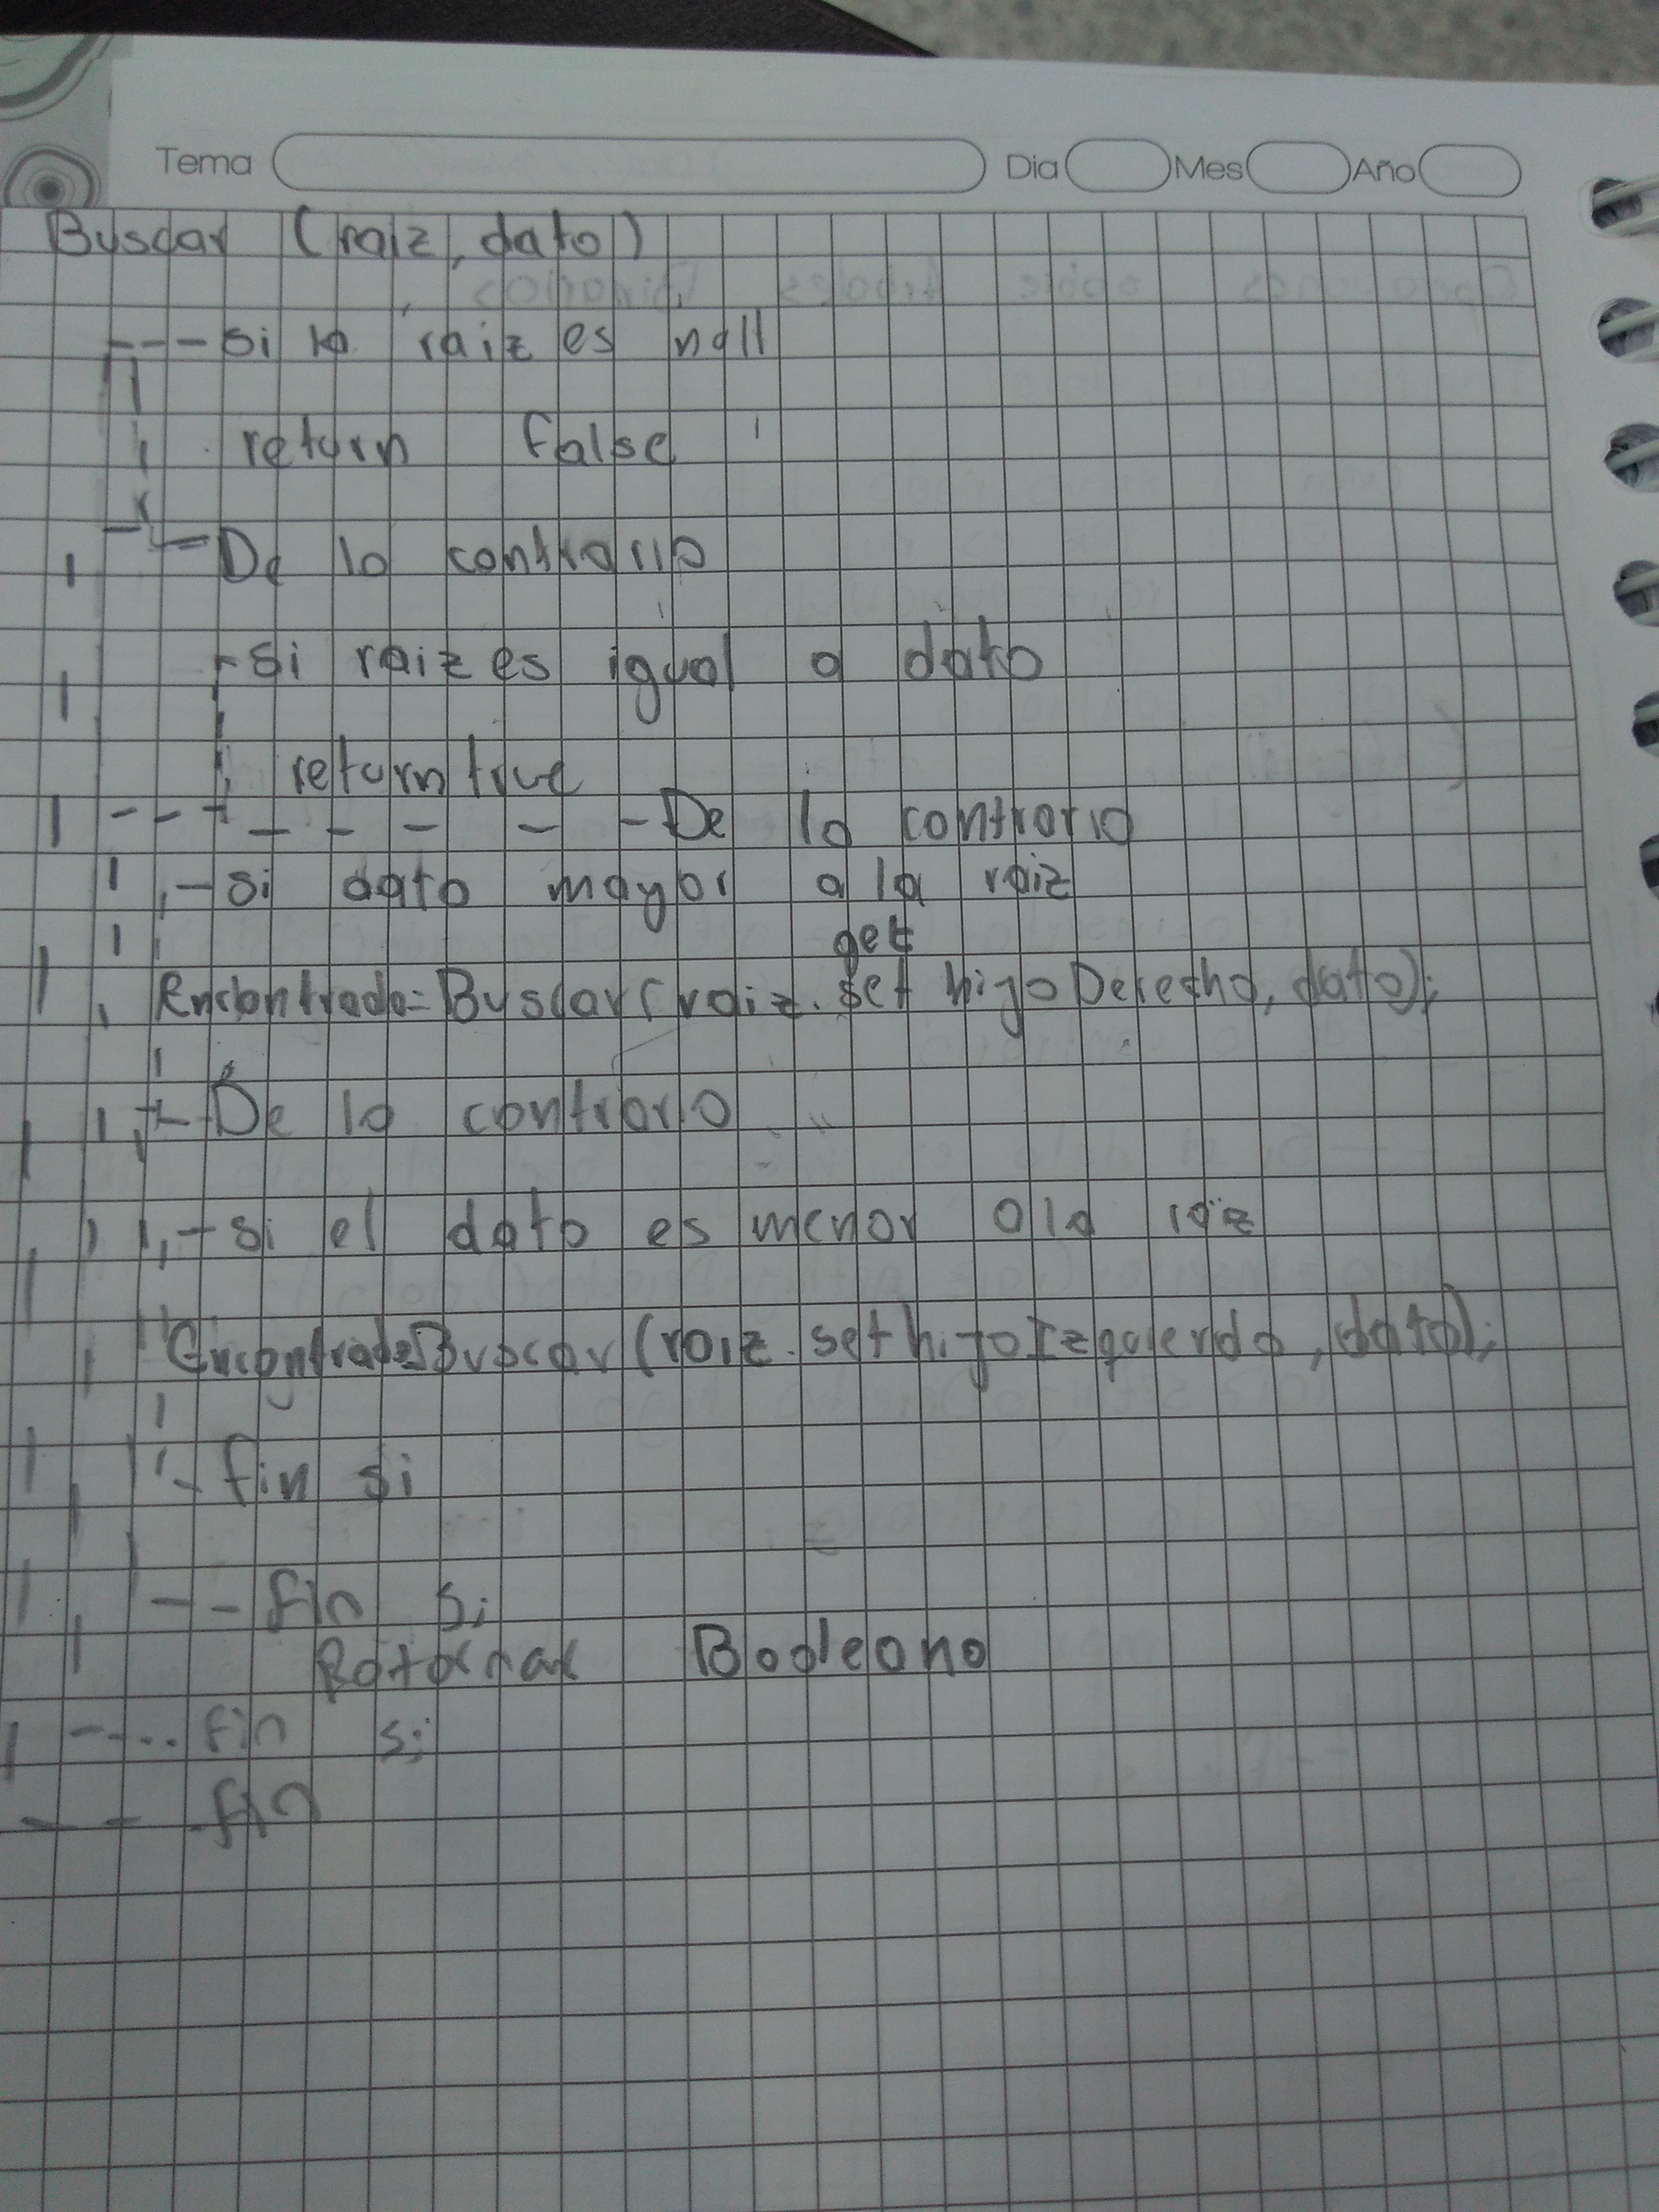 Tema Dia Mes Año
Buscar (raiz, dato)
---si la raiz es null
return false
De lo contrario
-si raiz es igual a dato
return true
--- - - - - -De lo contrario
-si dato mayor a la raiz
get
Encontrado=Buscar(raiz.set hijoDerecho, dato);
De lo contrario
-si el dato es menor a la raiz
Encontrado=Buscar(raiz.set hijoIzquierdo, dato);
- fin si
-- fin si
Retornar Booleano
----- fin si
-- fin